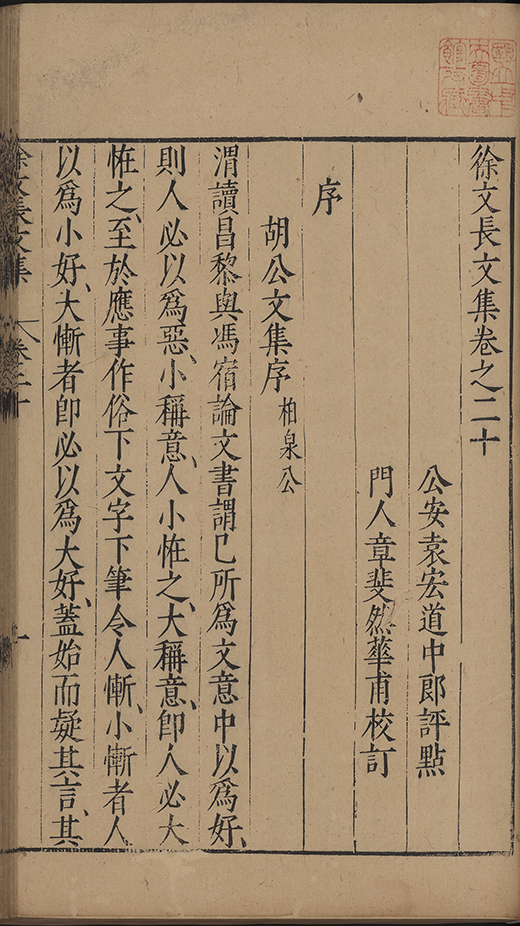 徐文長文集卷之二十
公安袁宏道中郎評點
門人章斐然華甫校訂
序
胡公文集序柏泉公
渭讀昌黎與馮宿論文書謂已所爲文意中以爲好、
則人必以爲惡、小稱意、人小恠之、大稱意、卽人必大
恠之、至於應事作俗下文字下筆令人慚、小慚者人
以爲小好、大慚者卽必以爲大好、蓋始而疑其言、其
徐文長文集 卷二十 一